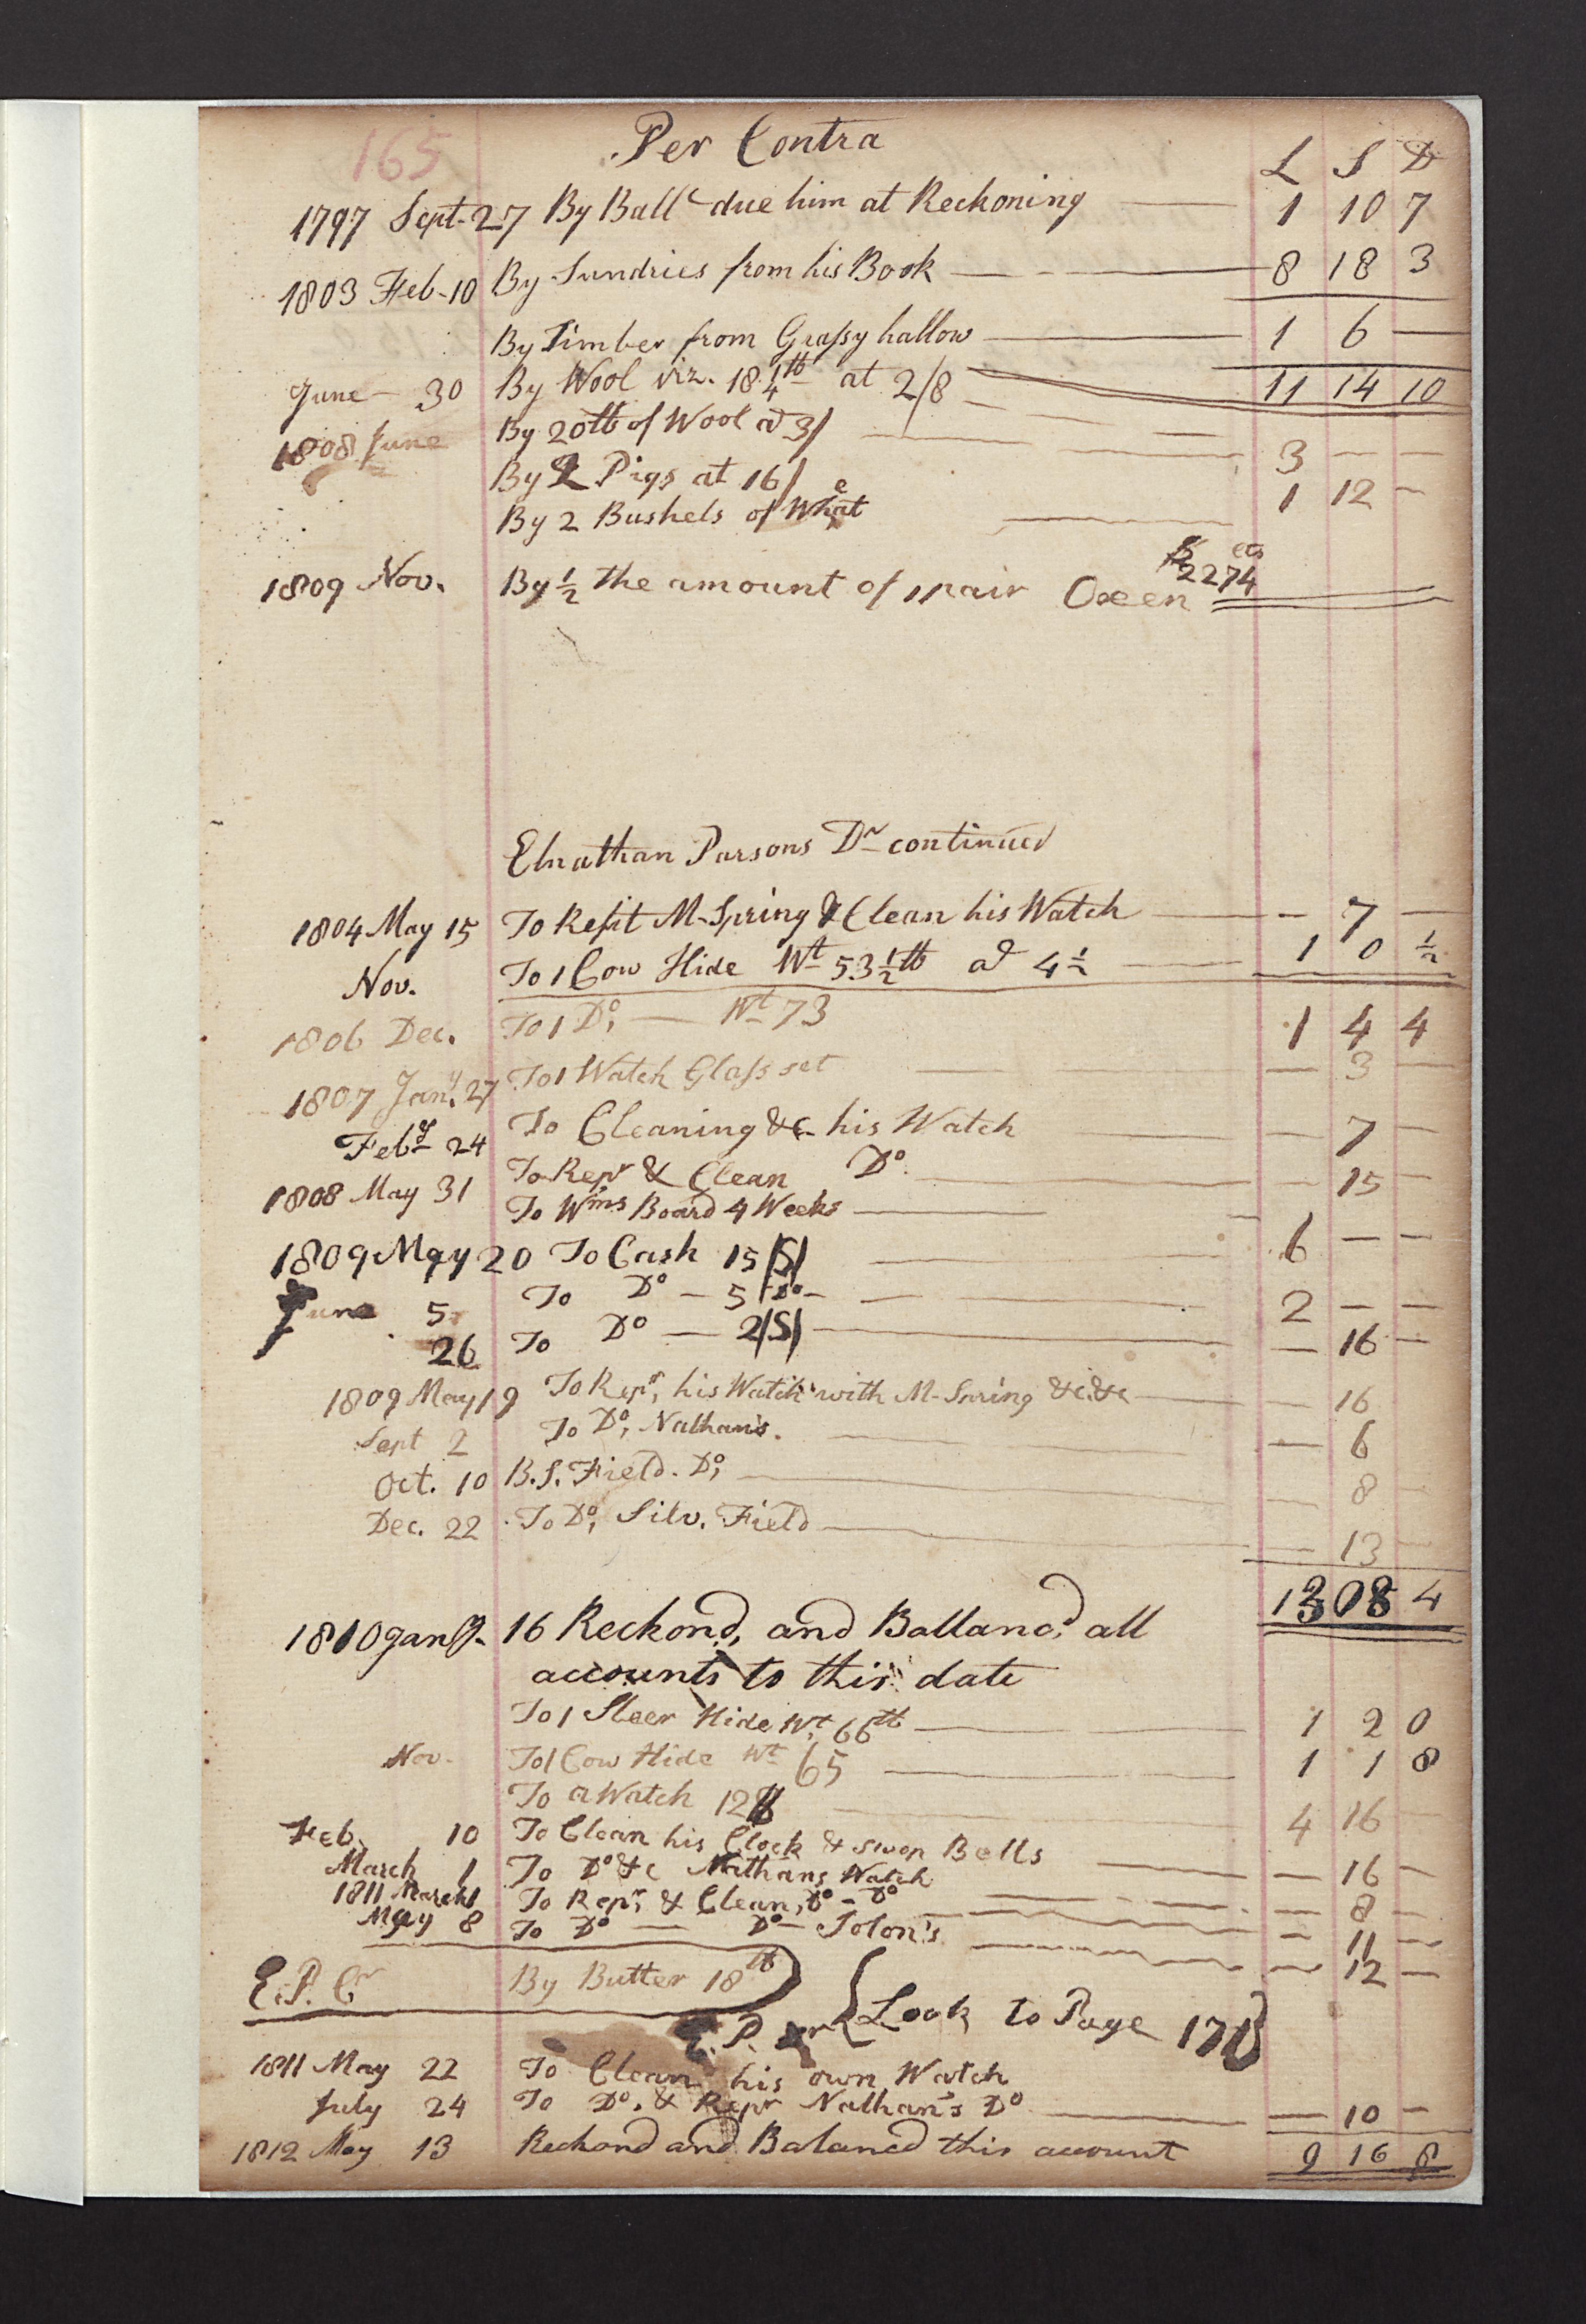 165
Per Contra
L S D
1797 Sept. 27 By Ballc due him at Reckoning — 1 10 7
1803 Feb-10 By Sundries from his Book — 8 18 3
By Timber from Grassy hallow — 1 6 —
June — 30 By Wool viz. 18 1/4 lb at 2/8 — 11 14 10
1808 June By 20 lb of Wool at 3/ — 3 — —
By 2 Pigs at 16/ 1 12 —
By 2 Bushels of Wheat —
$ cts
1809 Nov. By 1/2 the amount of 1 pair Oxen 22 74
Elnathan Parsons Dr continued
1804 May 15 To Refit M-Spring & Clean his Watch — 7 —
Nov. To 1 Cow Hide Wt 53 1/2 lb at 4 1/2 — 1 0 1/2
1806 Dec. To 1 Do, — Wt 73 1 4 4
1807 Jany. 27 To 1 Watch Glass set — 3 —
Feby 24 To Cleaning &c his Watch — 7 —
1808 May 31 To Repr & Clean Do. — 15 —
To Wms Board 4 Weeks —
1809 May 20 To Cash 15/S/ — 6 — —
June 5 To Do — 5/Do — 2 — —
26 To Do — 2/S/ — 16 —
1809 May 19 To Repr, his Watch with M-Spring &c.&c — 16
Sept 2 To Do, Nathan's. — 6
Oct. 10 B.S. Field. Do, — 8 —
Dec. 22 To Do, Silv. Field — 13 —
13 08 4
1810 Jany. 16 Reckond, and Balland all
accounts to this date
To 1 Steer Hide Wt. 66 lb — 1 2 0
Nov. To 1 Cow Hide Wt 65 — 1 1 8
To a Watch — 4 16 —
Feb. 10 To Clean his Clock & Bells — 16 —
March 1 To Do &c Nathans Watch — 8 —
1811 March 1 To Repr, & Clean, Do - Do — 11 —
May 8 To Do — Do — Solon's — 12 —
E.P. Cr By Butter 18 lb
E.P. { Look to Page
1811 May 22 To Clean his own Watch
July 24 To Do. & Repr Nathan's Do — 10 —
1812 May 13 Reckond and Balancd this account 9 16 8